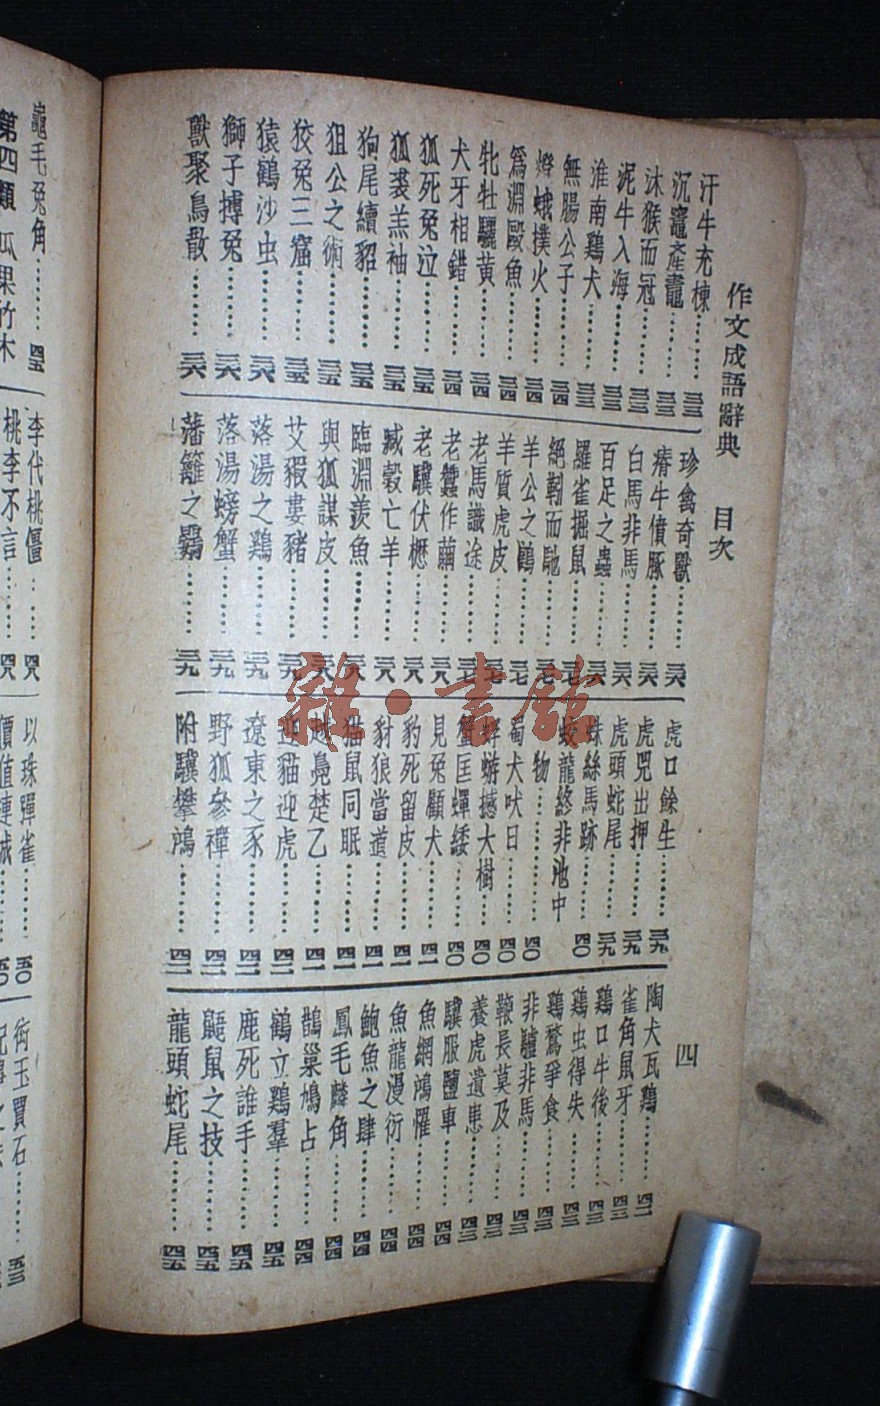 作文成語辭典 目次
四
汗牛充棟………三三
沉竈產鼃………三三
沐猴而冠………三三
泥牛入海………三三
淮南鷄犬………三三
無腸公子………三四
燈蛾撲火………三四
爲淵毆魚………三四
牝牡驪黄………三四
犬牙相錯………三四
狐死兔泣………三五
狐裘羔袖………三五
狗尾續貂………三五
狙公之術………三五
狡兔三窟………三五
猿鶴沙虫………三六
獅子搏兔………三六
獸聚鳥散………三六
珍禽奇獸………三六
瘠牛僨豚………三六
白馬非馬………三六
百足之蟲………三六
羅雀掘鼠………三六
絕靷而馳………三七
羊公之鶴………三七
羊質虎皮………三七
老馬識途………三七
老蠶作繭………三八
老驥伏櫪………三八
臧穀亡羊………三八
臨淵羨魚………三八
與狐謀皮………三八
艾豭婁豬………三九
落湯之鷄………三九
落湯螃蟹………三九
藩籬之鷃………三九
虎口餘生………三九
虎兕出押………三九
虎頭蛇尾………三九
蛛絲馬跡………四〇
蛟龍終非池中
物………四〇
蜀犬吠日………四〇
蚍蜉撼大樹………四〇
蟹匡蟬緌………四〇
見兔顧犬………四一
豹死留皮………四一
豺狼當道………四一
猫鼠同眠………四一
越鳧楚乙………四一
迎貓迎虎………四二
遼東之豕………四二
野狐參禪………四二
附驥攀鴻………四二
陶犬瓦鷄………四二
雀角鼠牙………四三
鷄口牛後………四三
鷄虫得失………四三
鷄鶩爭食………四三
非驢非馬………四三
鞭長莫及………四三
養虎遺患………四三
驥服鹽車………四四
魚網鴻罹………四四
魚龍漫衍………四四
鮑魚之肆………四四
鳳毛麟角………四四
鵲巢鳩占………四四
鶴立鷄羣………四五
鹿死誰手………四五
鼯鼠之技………四五
龍頭蛇尾………四五
龜毛兔角………四五
第四類 瓜果竹木
李代桃僵………四八
桃李不言………四八
以珠彈雀………五〇
價值連城………五〇
衒玉賈石………五三
雜·書館